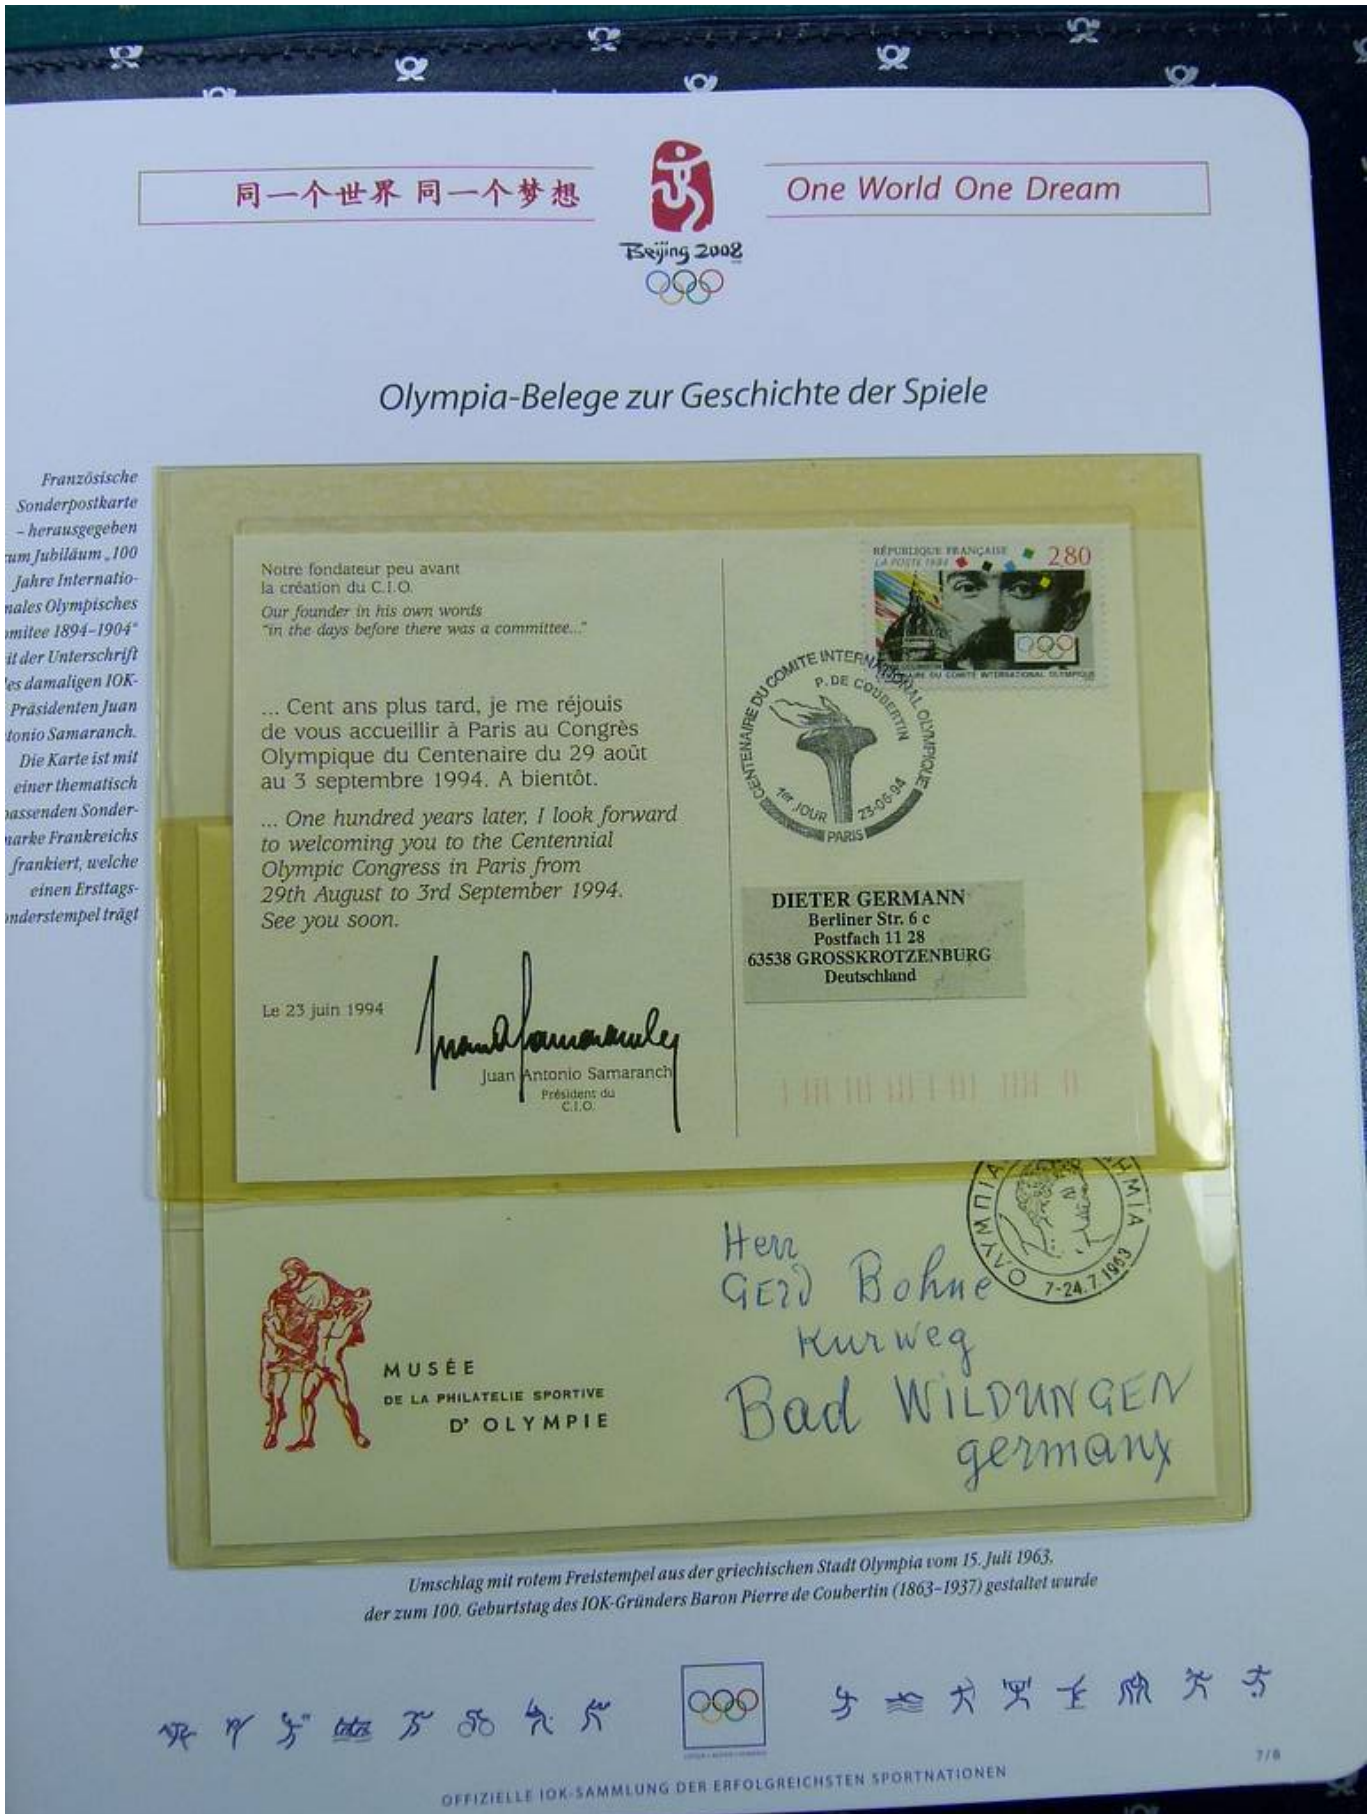 同一个世界 同一个梦想
One World One Dream
Beijing 2008
Olympia-Belege zur Geschichte der Spiele
Französische
Sonderpostkarte
– herausgegeben
um Jubiläum „100
Jahre Internatio-
nales Olympisches
omitee 1894–1904“
it der Unterschrift
es damaligen IOK-
Präsidenten Juan
tonio Samaranch.
Die Karte ist mit
einer thematisch
assenden Sonder-
arke Frankreichs
frankiert, welche
einen Ersttags-
onderstempel trägt
Notre fondateur peu avant
la création du C.I.O.
Our founder in his own words
"in the days before there was a committee..."
... Cent ans plus tard, je me réjouis
de vous accueillir à Paris au Congrès
Olympique du Centenaire du 29 août
au 3 septembre 1994. A bientôt.
... One hundred years later, I look forward
to welcoming you to the Centennial
Olympic Congress in Paris from
29th August to 3rd September 1994.
See you soon.
Le 23 juin 1994
Juan Antonio Samaranch
Président du
C.I.O.
RÉPUBLIQUE FRANÇAISE 2,80
LA POSTE 1994
DU COMITÉ INTERNATIONAL OLYMPIQUE
CENTENAIRE DU COMITE INTERNATIONAL OLYMPIQUE
P. DE COUBERTIN
1er JOUR 23-06-94
PARIS
DIETER GERMANN
Berliner Str. 6 c
Postfach 11 28
63538 GROSSKROTZENBURG
Deutschland
ΟΛΥΜΠΙΑ ΗΜΙΑ
7-24.7.1963
Herr
Gerd Bohne
Kurweg
Bad WILDUNGEN
germany
MUSÉE
DE LA PHILATELIE SPORTIVE
D' OLYMPIE
Umschlag mit rotem Freistempel aus der griechischen Stadt Olympia vom 15. Juli 1963,
der zum 100. Geburtstag des IOK-Gründers Baron Pierre de Coubertin (1863–1937) gestaltet wurde
7/8
OFFIZIELLE IOK-SAMMLUNG DER ERFOLGREICHSTEN SPORTNATIONEN